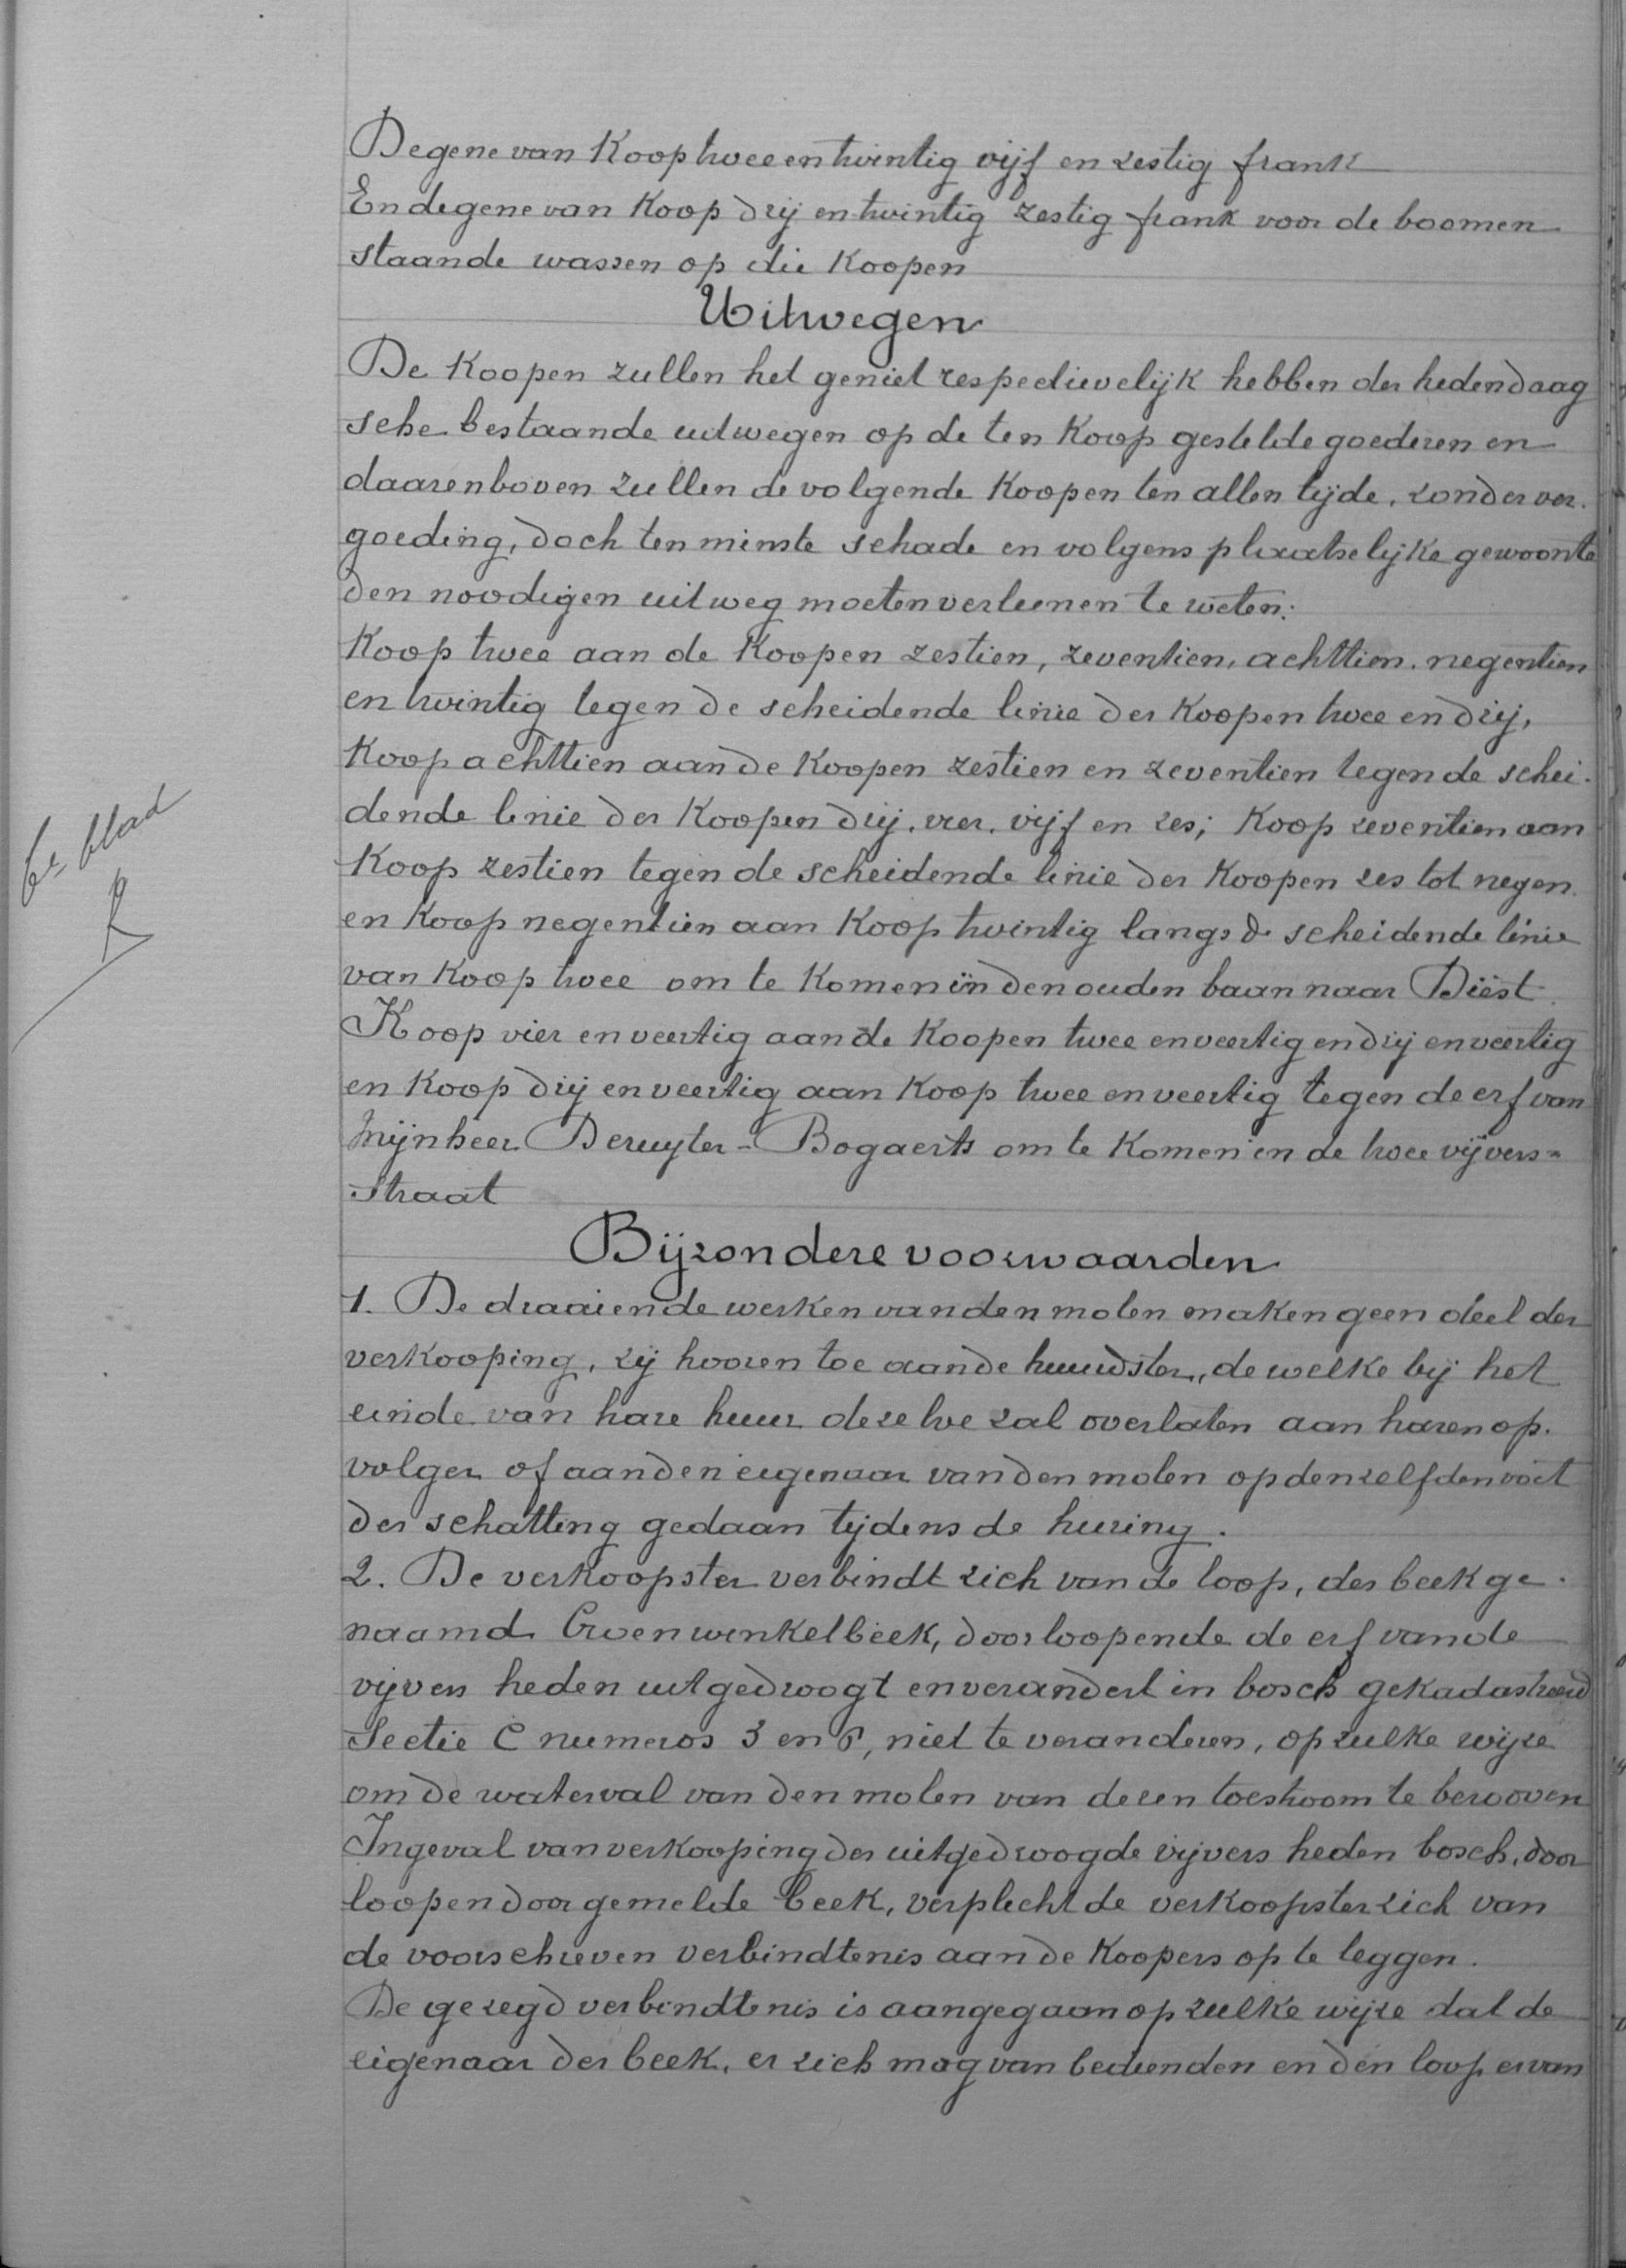 Degene van Koop twee en twintig vijf en zestig frank
En degene van Koop drij en twintig zestig frank voor de boomen
staande wassen op die Koopen
Uitwegen
De Koopen zullen het geniet respectievelijk hebben der hedendaag
sche bestaande uitwegen op de ten Koop gestelde goederen en
daarenboven zullen de volgende Koopen ten allen tijde, zonder ver-
goeding, doch ten minste schade en volgens plaatselijke gewoonte
den noodigen uitweg moeten verleenen te weten:
Koop twee aan de Koopen zestien, zeventien, achttien, negentien
en twintig tegen de scheidende linie der Koopen twee en drij,
Koop achttien aan de Koopen zestien en zeventien tegen de schei-
dende linie der Koopen drij, vier, vijf en zes; Koop zeventien aan
Koop zestien tegen de scheidende linie der Koopen zes tot negen
en Koop negentien aan Koop twintig langs de scheidende linie
van Koop twee om te Komen in den ouden baan naar Diest.
6e blad
Koop vier en veertig aan de Koopen twee en veertig en drij en veertig
en Koop drij en veertig aan Koop twee en veertig tegen de erf van
Mijnheer Deruyter-Bogaerts om te Komen in de twee vijvers=
straat
Bijzondere voorwaarden
1. De draaiende werken van den molen maken geen deel der
verkooping, zij hooren toe aan de huurdster, dewelke bij het
einde van hare huur dezelve zal overlaten aan haren op-
volger of aan den eigenaar van den molen op denzelfden voet
der schatting gedaan tijdens de huring.
2. De verkoopster verbindt zich van de loop, der beek ge-
naamd Croenwinkelbeek, doorloopende de erf van de
vijvers heden uitgedroogt en verandert in bosch gekadastreerd
Sectie C numeros 3 en 6, niet te veranderen, op zulke wijze
om de waterval van den molen van dezen toestroom te berooven
Ingeval van verkooping der uitgedroogde vijvers heden bosch, door
loopen door gemelde beek, verplicht de verkoopster zich van
de voorschreven verbindtenis aan de Koopers op te leggen.
De gezegd verbindtenis is aangegaan op zulke wijze dat de
eigenaar der beek, er zich mag van bedienden en den loop ervan